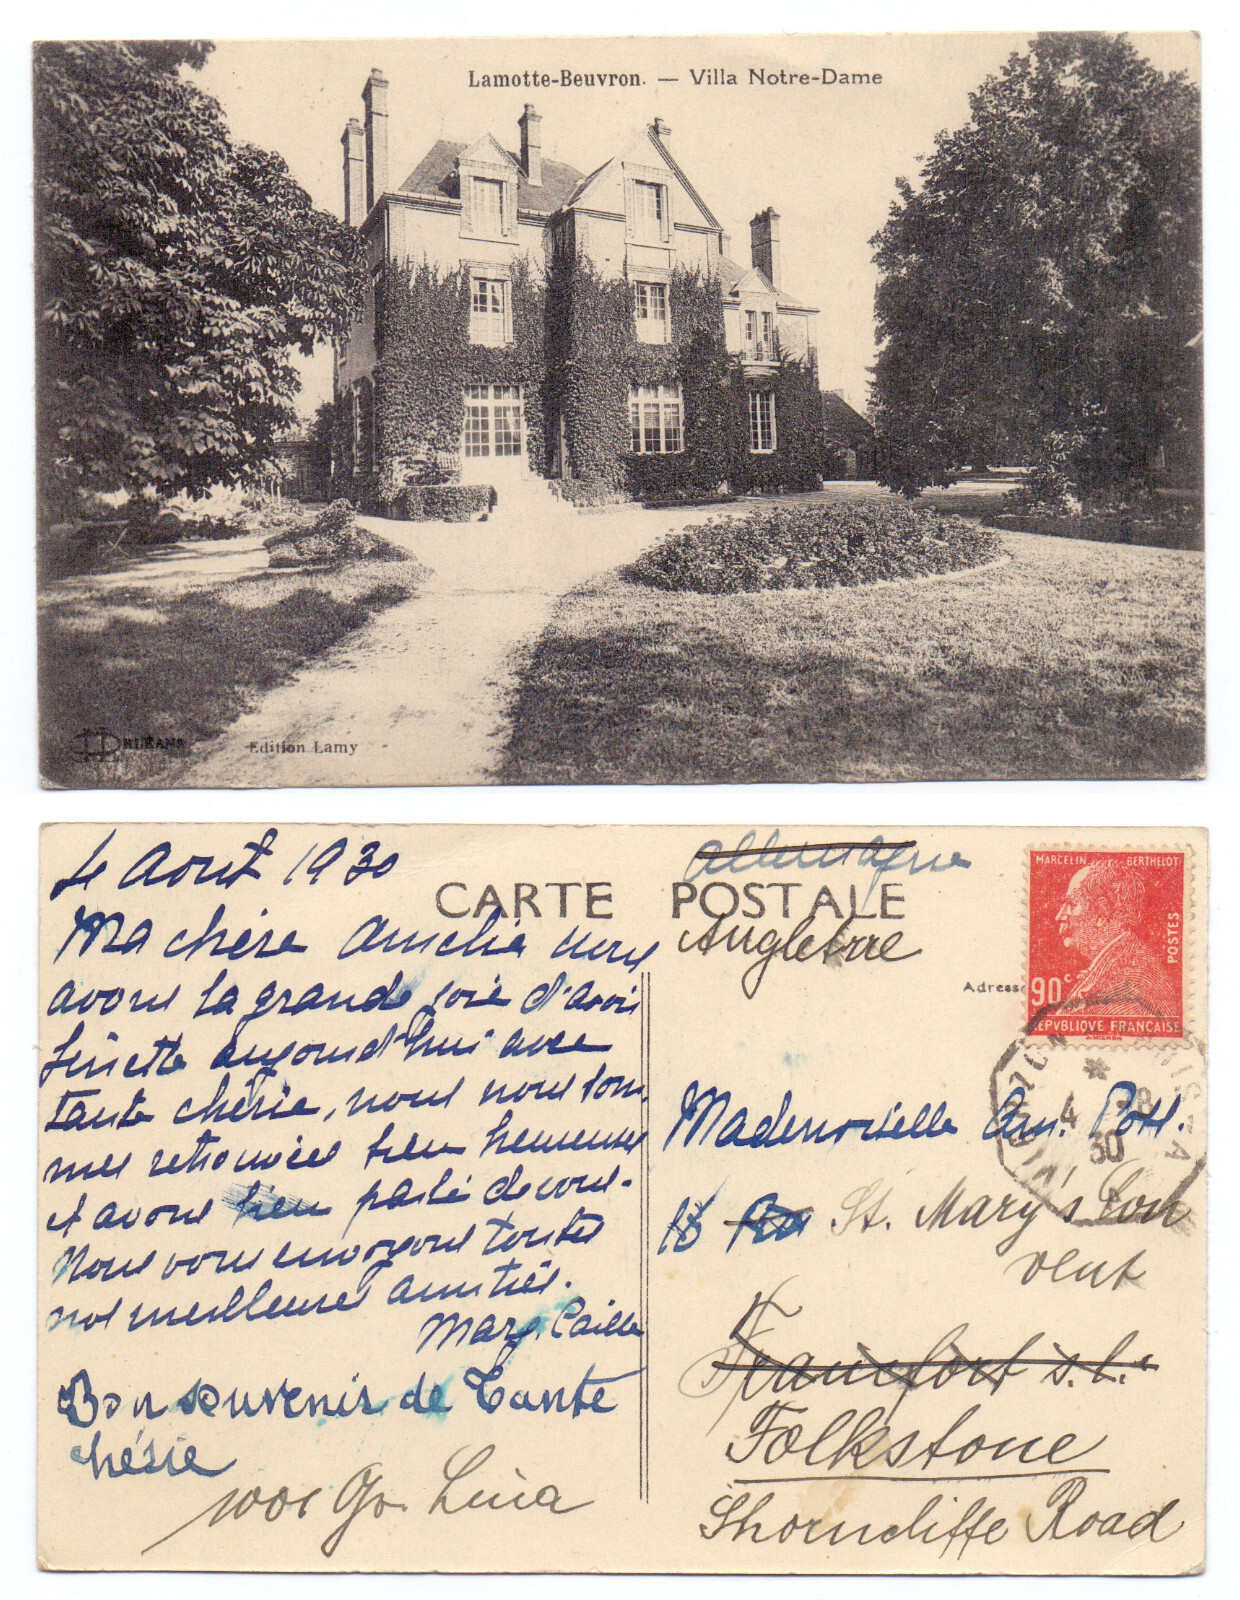 Lamotte-Beuvron. — Villa Notre-Dame
Edition Lamy
4 Août 1930
CARTE POSTALE
Allemagne
Angleterre
MARCELIN BERTHELOT
POSTES
90c
REPVBLIQUE FRANÇAISE
Adresse
Ma chère Amélie nous
avons la grande joie d'avoir
Linette aujourd'hui avec
tante chérie, nous nous som
mes retrouvées bien heureuses
et avons bien parlé de vous.
Nous vous envoyons toutes
nos meilleures amitiés.
Marg. Caille
Bon souvenir de Tante
chérie
von Lina
4 - 8
30
Mademoiselle Am.
18 St. Mary's Con
vent
Francfort s.
Folkstone
Shorncliffe Road